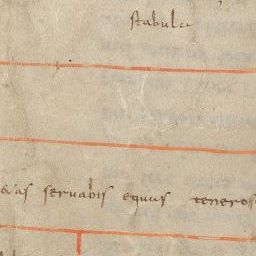 stabula
&as seruabis equus teneros